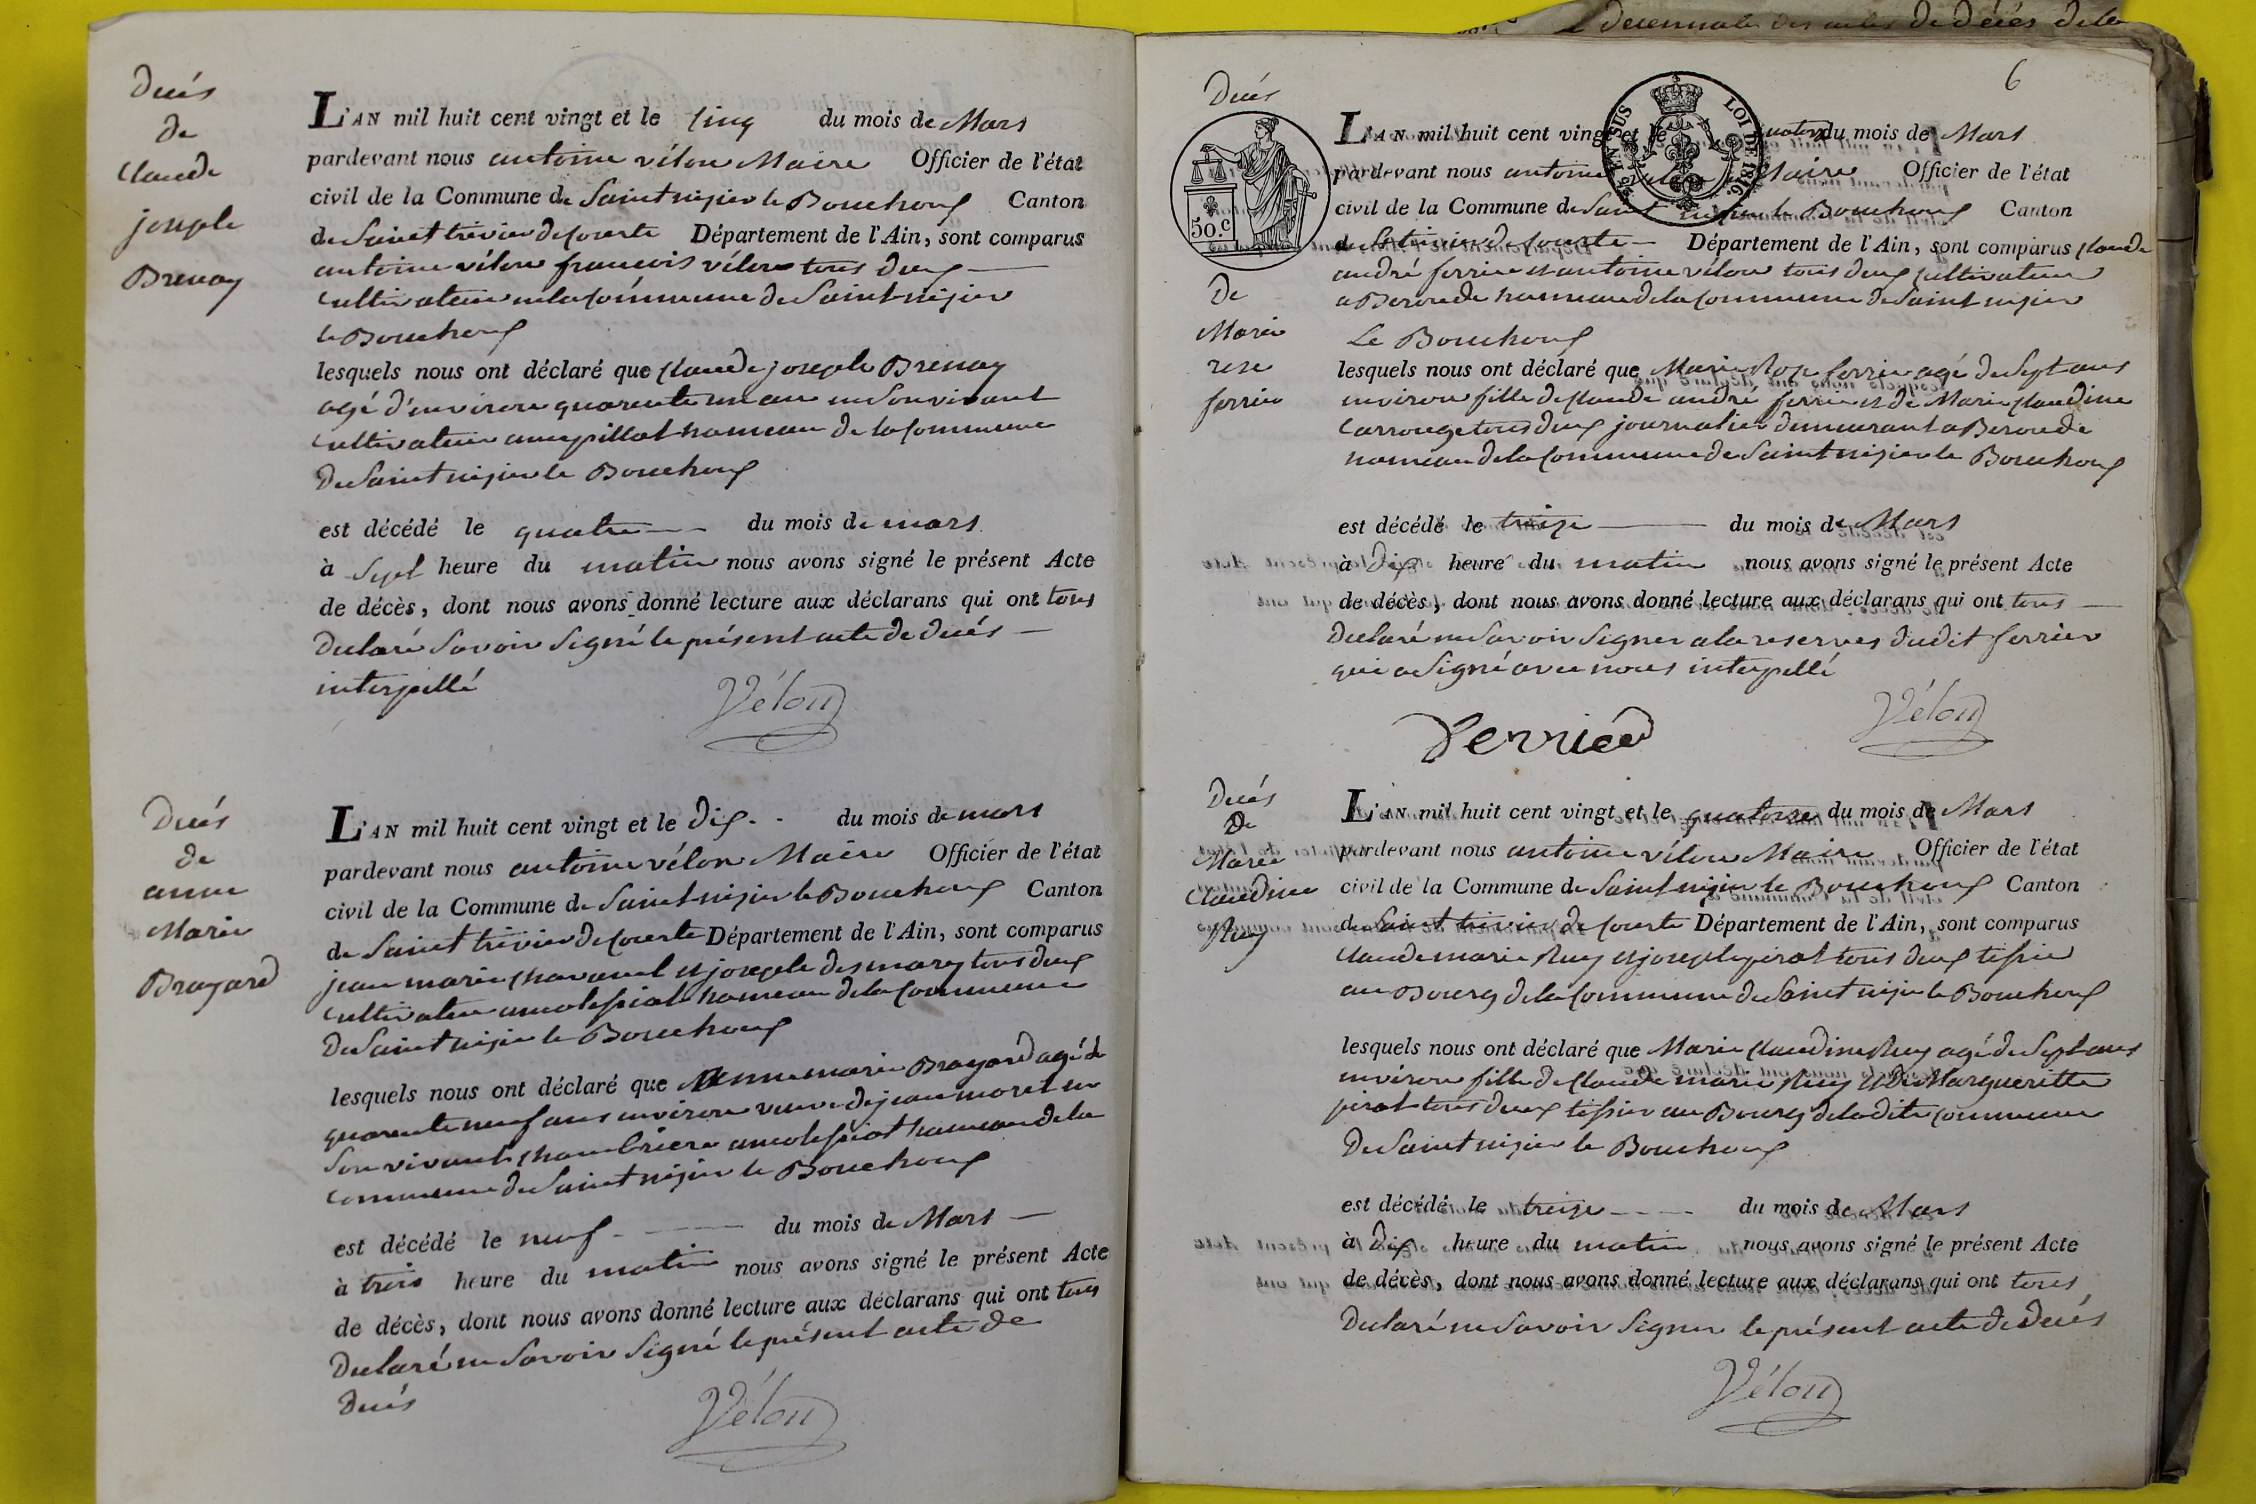 Décés
de
Claude
joseph
Brevay
L'AN mil huit cent vingt et le cinq du mois de Mars
pardevant nous antoine vélon Maire Officier de l'état
civil de la Commune de Saint nizier le Bouchoux Canton
de Saint trivier de Courte Département de l'Ain, sont comparus
antoine vélon francois vélon tous deux
cultivateur en la Commune de Saint nizier
le Bouchoux
lesquels nous ont déclaré que Claude joseph Brevay
agé d'environ quarente un an en Son vivant
cultivateur au pillat hameau de la Commune
De Saint nizier le Bouchoux
est décédé le quatre du mois de mars
à Sept heure du matin nous avons signé le présent Acte
de décès, dont nous avons donné lecture aux déclarans qui ont tous
Déclaré Savoir Signé le présent acte de décés
interpellé
Vélon
Décés
de
anne
Marie
Brayard
L'AN mil huit cent vingt et le Dix du mois de mars
pardevant nous antoine vélon Maire Officier de l'état
civil de la Commune de Saint nizier le Bouchoux Canton
de Saint trivier de Courte Département de l'Ain, sont comparus
jean marie Chavanel et joseph desmary tous deux
cultivateur au hameau de la Commune
De Saint nizier le Bouchoux
lesquels nous ont déclaré que Anne marie Brayard agé de
quarente neuf ans environ veuve de jean morel en
Son vivant chambriere au hameau de la
Commune de Saint nizier le Bouchoux
est décédé le neuf du mois de Mars
à trois heure du matin nous avons signé le présent Acte
de décès, dont nous avons donné lecture aux déclarans qui ont tous
Déclaré ne Savoir Signé le présent acte de
Décés
Vélon
6
Décés
50.C
de
Marie
rose
ferrier
L'AN mil huit cent vingt et le quatorze du mois de Mars
EN SUS
LOI DE 1816
pardevant nous antoine vélon Maire Officier de l'état
civil de la Commune de Saint nizier le Bouchoux Canton
de St trivier de Courte Département de l'Ain, sont comparus Claude
andré ferrier et antoine vélon tous deux cultivateur
a Beroude hameau de la Commune de Saint nizier
Le Bouchoux
lesquels nous ont déclaré que Marie Rose ferrier agé de Sept ans
environ fille de Claude andré ferrier et de Marie Claudine
Carrouge tous deux journalier demeurant a Beroude
hameau de la Commune de Saint nizier le Bouchoux
est décédé le treize du mois de Mars
à Dix heure du matin nous avons signé le présent Acte
de décès, dont nous avons donné lecture aux déclarans qui ont tous
Declaré ne Savoir Signer a la reserves dudit ferrier
qui a Signé avec nous interpellé
Vélon
ferrier
Décés
De
Marie
Claudine
Ruy
L'AN mil huit cent vingt et le quatorze du mois de Mars
pardevant nous antoine vélon Maire Officier de l'état
civil de la Commune de Saint nizier le Bouchoux Canton
de Saint trivier de Courte Département de l'Ain, sont comparus
Claude marie Ruy et joseph pirat tous deux tissier
au Bourg de la Commune de Saint nizier le Bouchoux
lesquels nous ont déclaré que Marie Claudine Ruy agé de Sept ans
environ fille de Claude marie Ruy et De Marguerite
pirat tous deux tissier au Bourg de la dite Commune
De Saint nizier le Bouchoux
est décédé le treize du mois de Mars
à Dix heure du matin nous avons signé le présent Acte
de décès, dont nous avons donné lecture aux déclarans qui ont tous
Declaré ne Savoir Signer le présent acte de Décés
Vélon